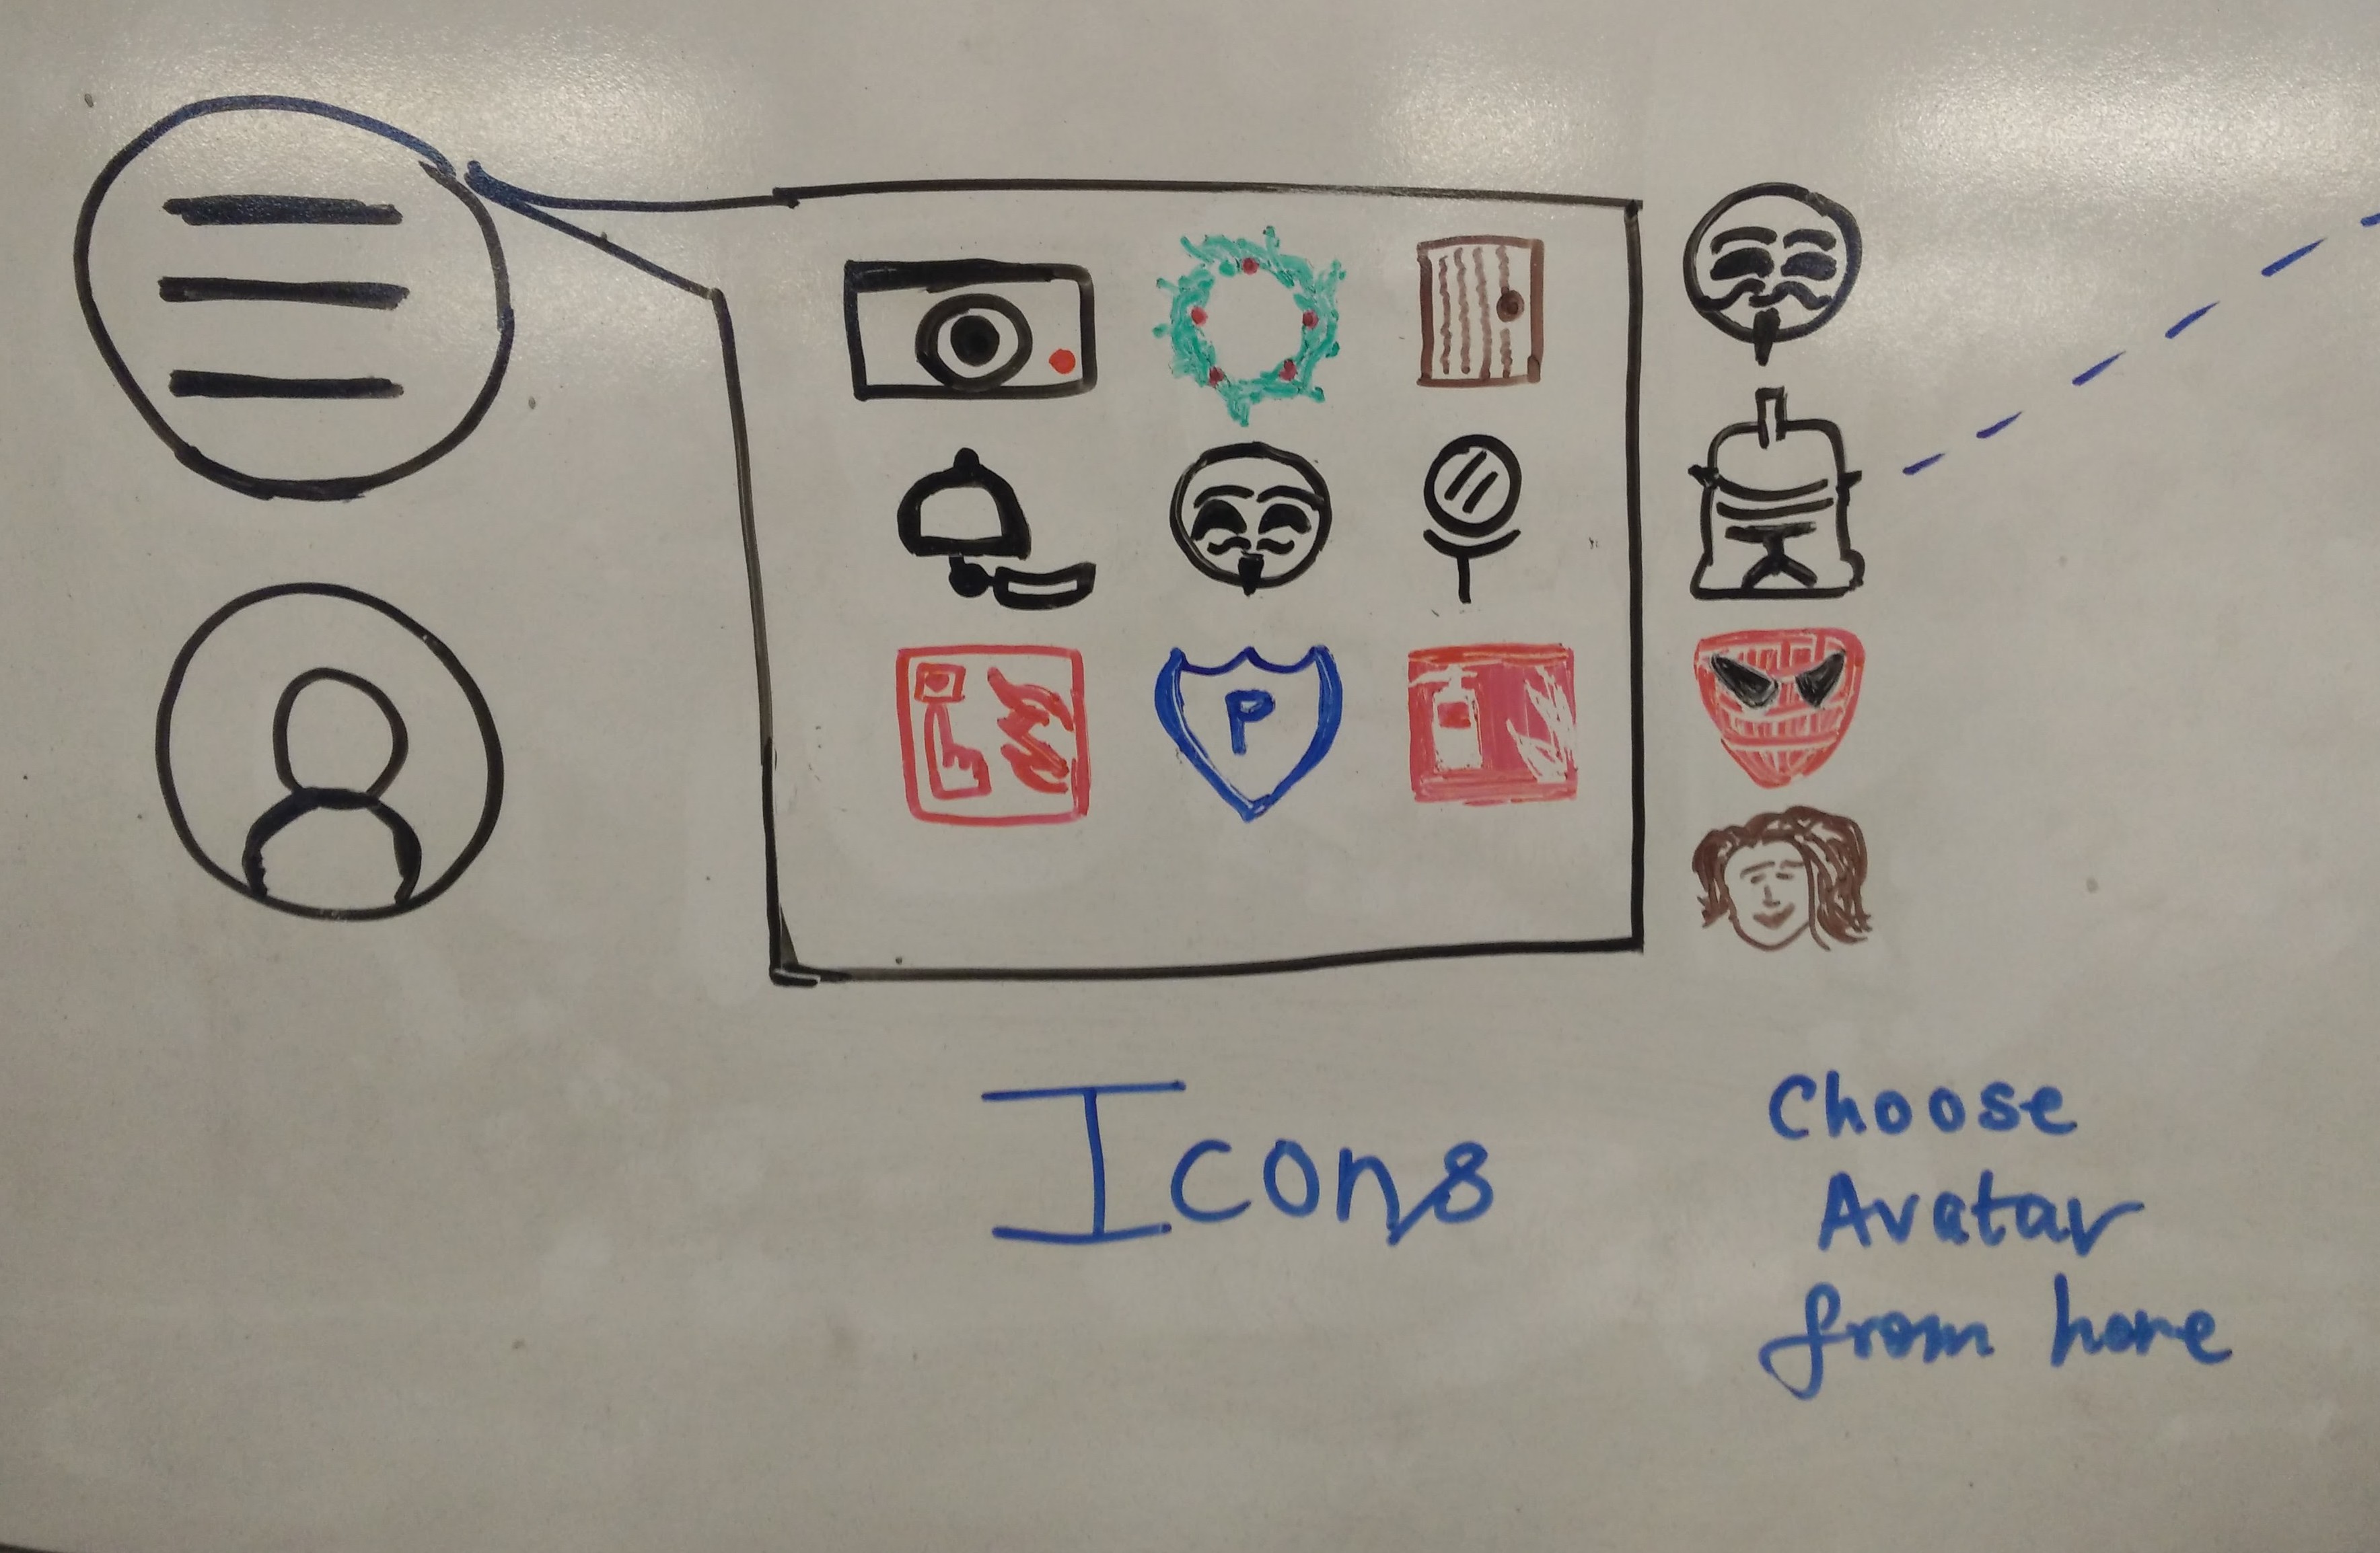 P
Icons
Choose
Avatar
from here